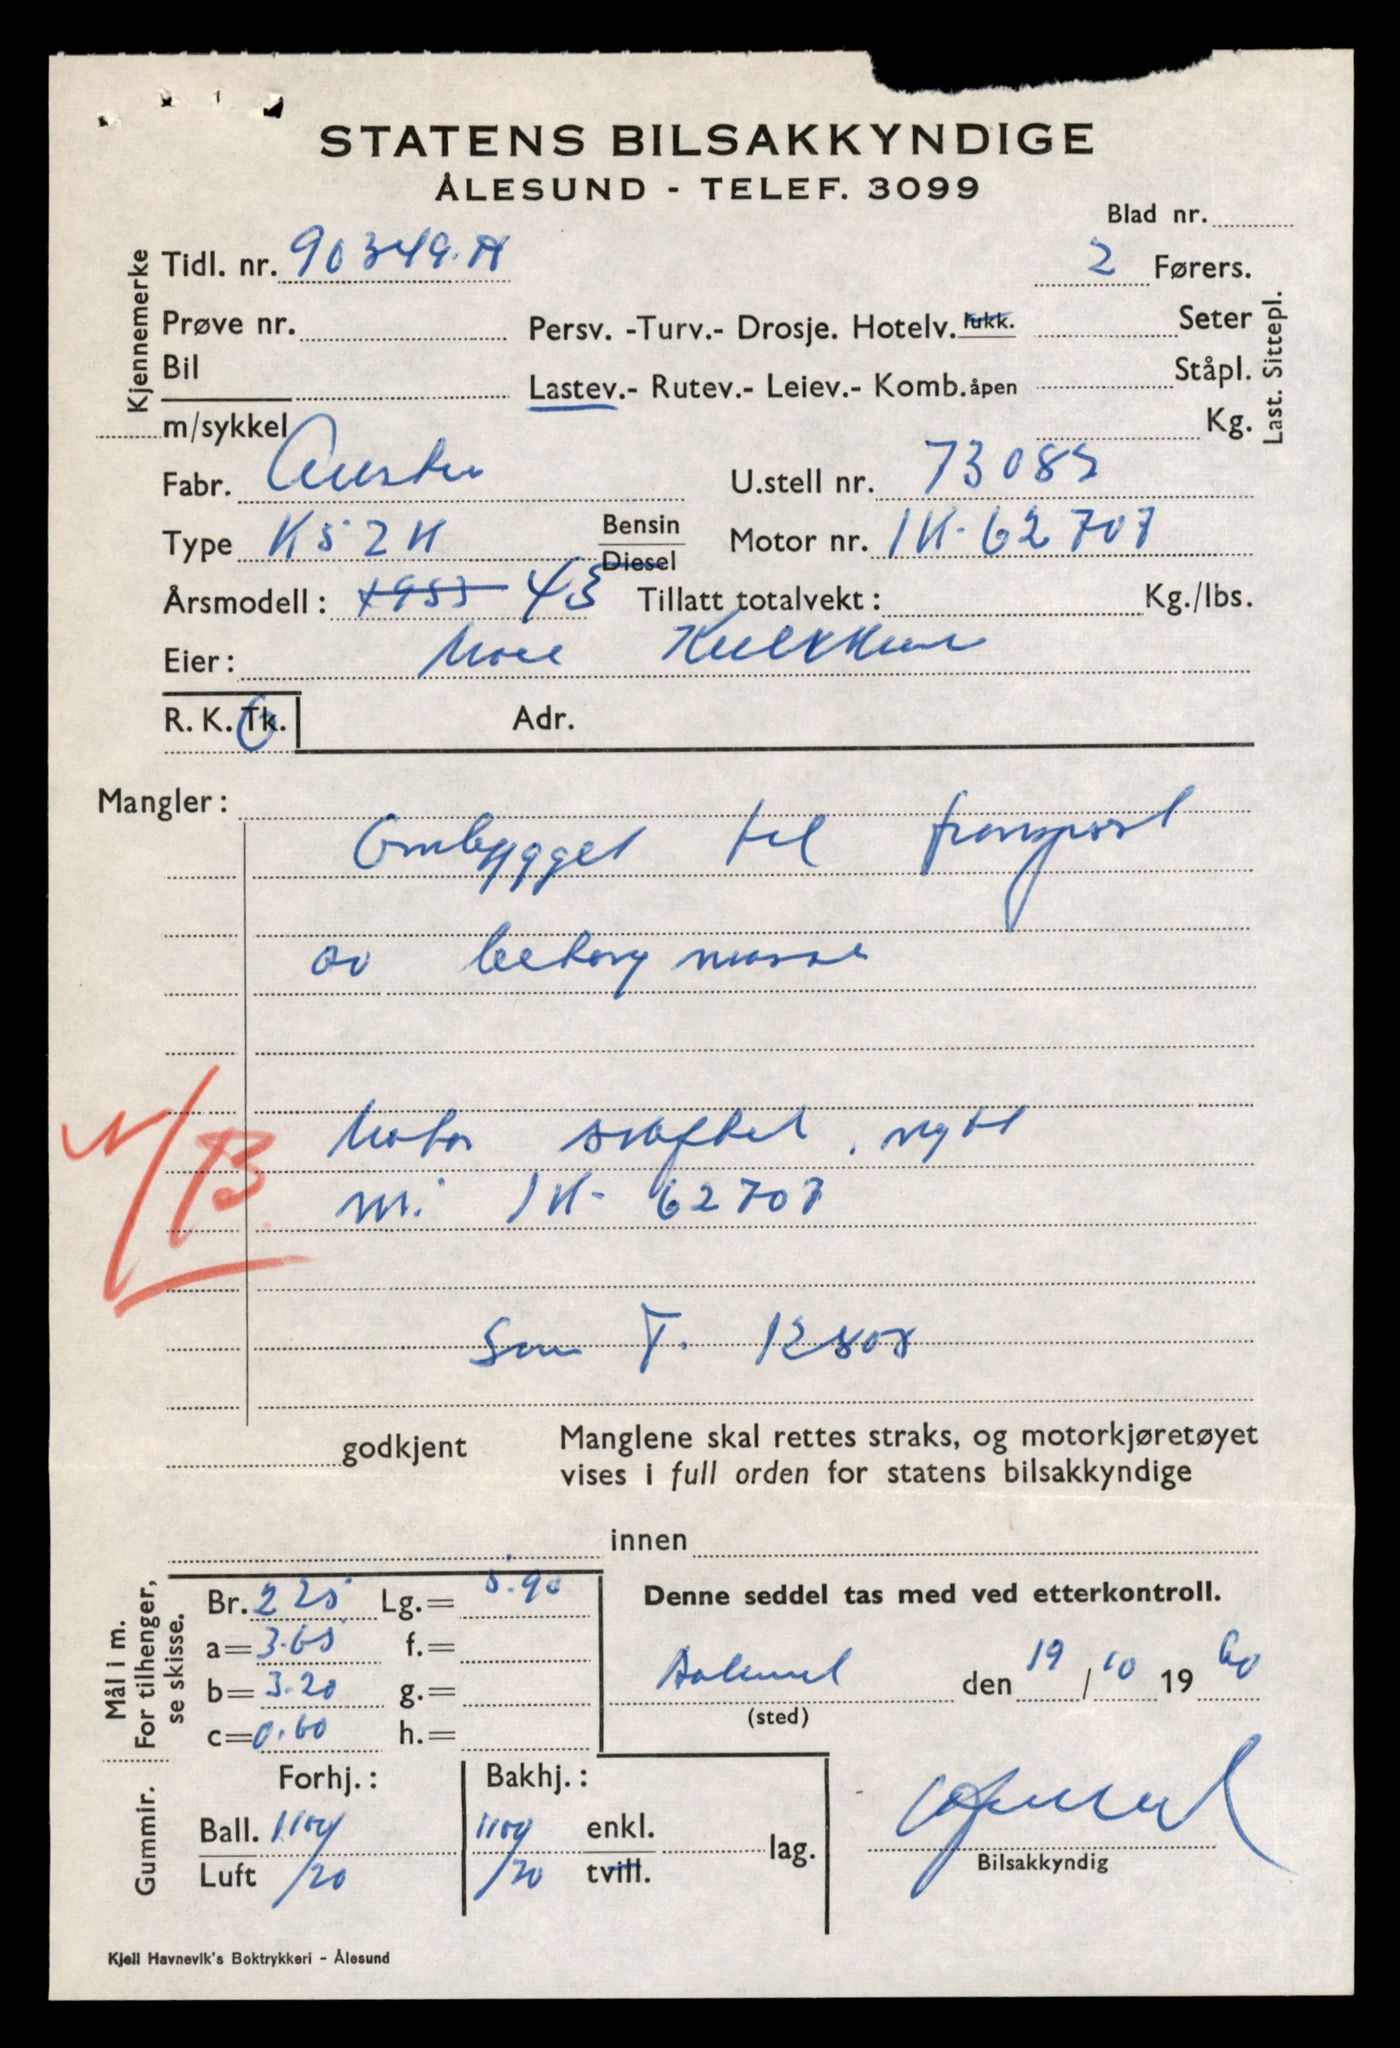 STATENS BILSAKKYNDIGE
ÅLESUND - TELEF. 3099
Blad nr.
Kjennemerke
Tidl. nr. 90349.A
2 Førers.
Prøve nr.
Persv. -Turv.- Drosje. Hotelv. lukk.
Seter
Bil
Lastev.- Rutev.- Leiev.- Komb. åpen
Ståpl.
m/sykkel
Kg.
Last. Sittepl.
Fabr. Austin
U.stell nr. 73085
Type K5 2K
Bensin
Diesel
Motor nr. 1K-62707
Årsmodell: 1953 43
Tillatt totalvekt: Kg./lbs.
Eier:
R. K. Tk.
Adr.
Mangler:
Ombygget til transport
av betong masse
N/B.
Motor skiftet, nytt
nr. 1K-62707
Som T.
godkjent
Manglene skal rettes straks, og motorkjøretøyet
vises i full orden for statens bilsakkyndige
innen
Mål i m.
For tilhenger,
se skisse.
Br. 225 Lg.= 5.90
a= 3.65 f.=
b= 3.20 g.=
c= 0.60 h.=
Denne seddel tas med ved etterkontroll.
Aalesund den 19/10 1960
(sted)
Gummir.
Forhj.: Bakhj.:
Ball. 1100 1100 enkl.
Luft /20 /20 tvill.
lag.
Bilsakkyndig
Kjell Havnevik's Boktrykkeri - Ålesund